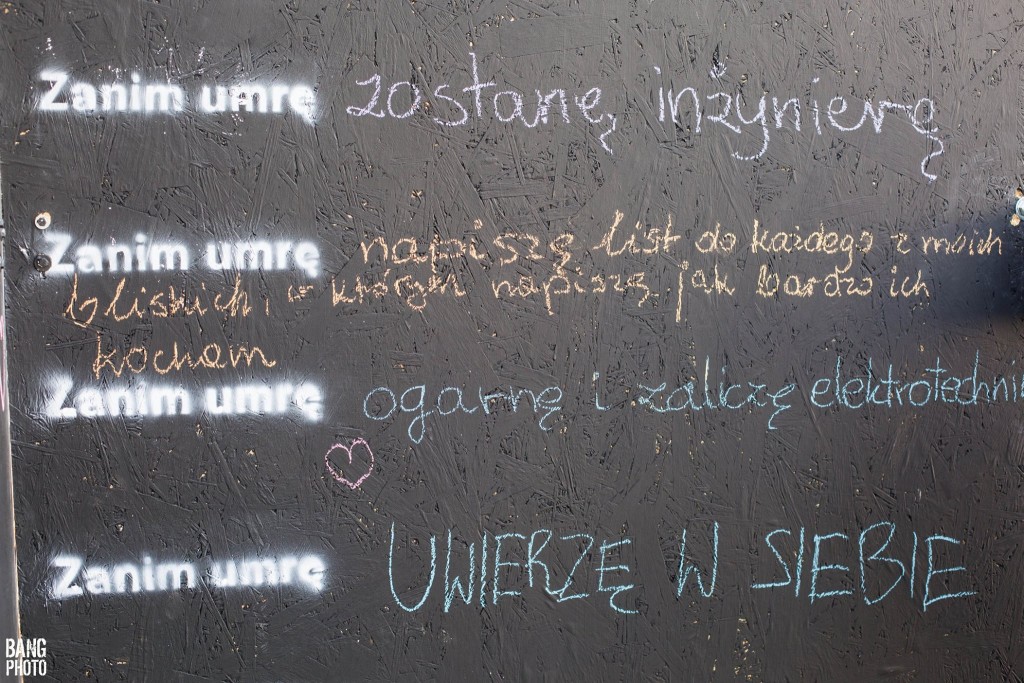 Zanim umrę zostanę inżynierę
Zanim umrę napiszę list do każdego z moich
bliskich, w których napiszę jak bardzo ich
kocham
Zanim umrę ogarnę i zaliczę elektrotechni
Zanim umrę UWIERZĘ W SIEBIE
BANG
PHOTO